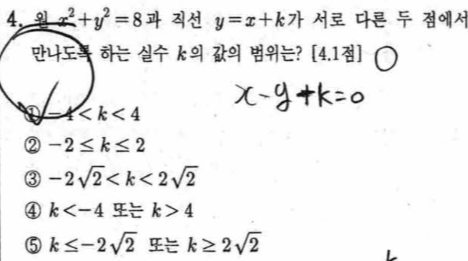 4. 원 x²+y²=8과 직선 y=x+k가 서로 다른 두 점에서
만나도록 하는 실수 k의 값의 범위는? [4.1점]
x-y+k=0
① -4<k<4
② -2≤k≤2
③ -2√2<k<2√2
④ k<-4 또는 k>4
⑤ k≤-2√2 또는 k≥2√2